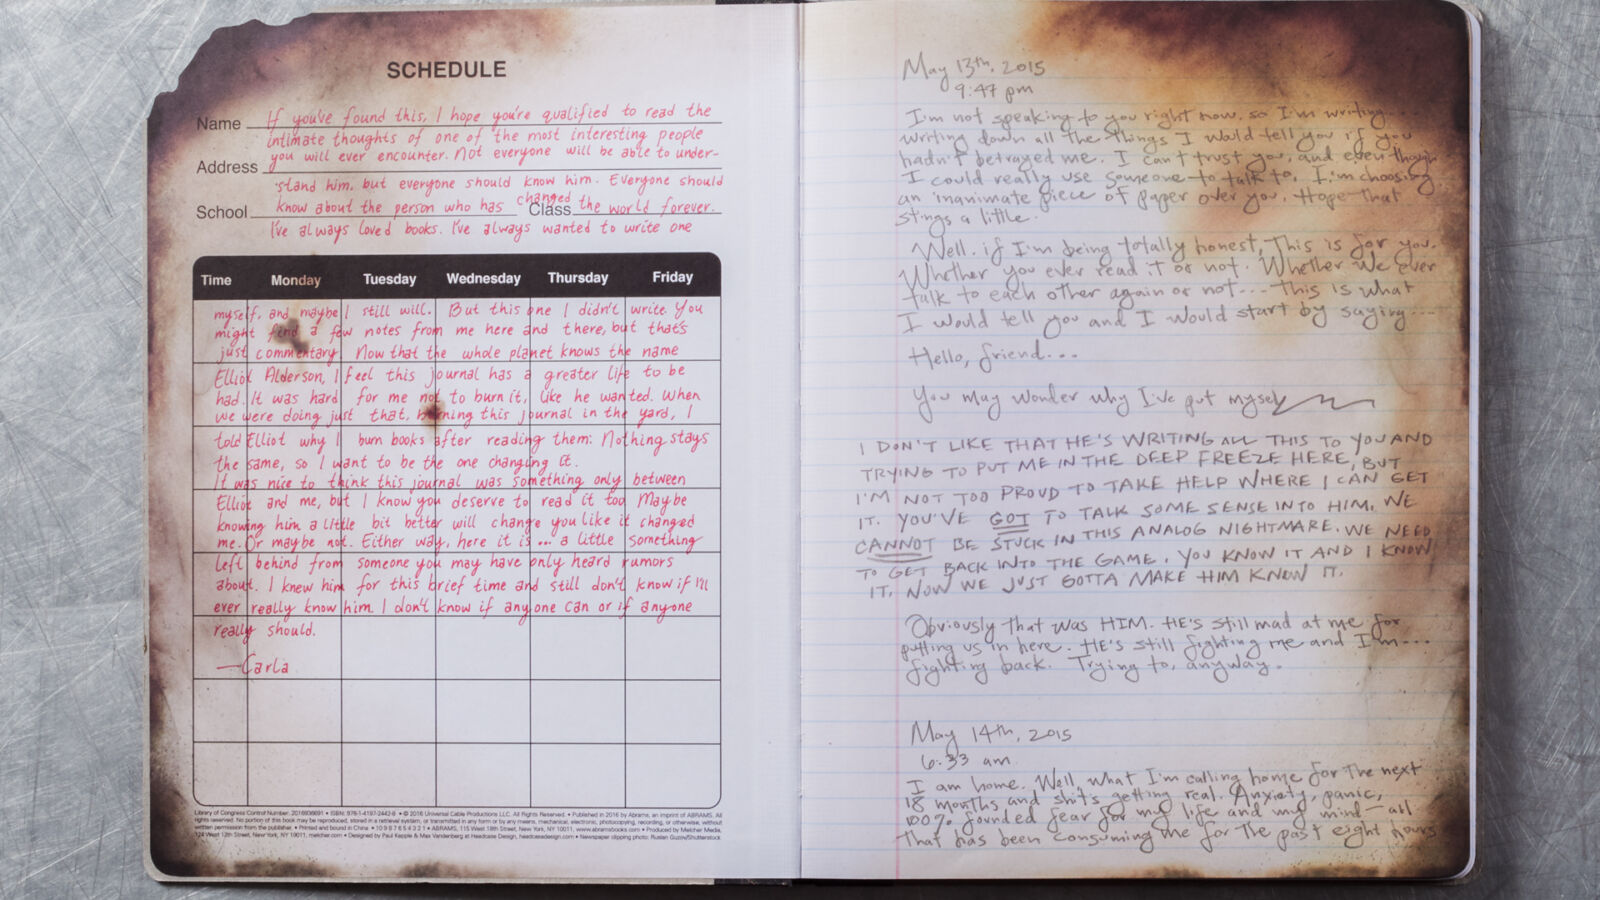 SCHEDULE
Name If you've found this, I hope you're qualified to read the
intimate thoughts of one of the most interesting people
you will ever encounter. Not everyone will be able to under-
Address
stand him, but everyone should know him. Everyone should
School know about the person who has changed Class the world forever.
I've always loved books. I've always wanted to write one
Time Monday Tuesday Wednesday Thursday Friday
myself, and maybe I still will. But this one I didn't write. You
might find a few notes from me here and there, but that's
just commentary. Now that the whole planet knows the name
Elliot Alderson, I feel this journal has a greater life to be
had. It was hard for me not to burn it, like he wanted. When
we were doing just that, burning this journal in the yard, I
told Elliot why I burn books after reading them: Nothing stays
the same, so I want to be the one changing it.
It was nice to think this journal was something only between
Elliot and me, but I know you deserve to read it too. Maybe
knowing him a little bit better will change you like it changed
me. Or maybe not. Either way, here it is... a little something
left behind from someone you may have only heard rumors
about. I knew him for this brief time and still don't know if I'll
ever really know him. I don't know if anyone can or if anyone
really should.
—Carla
Library of Congress Control Number: 2016936691 • ISBN: 978-1-4197-2442-8 • © 2016 Universal Cable Productions LLC. All Rights Reserved. • Published in 2016 by Abrams, an imprint of ABRAMS. All
rights reserved. No portion of this book may be reproduced, stored in a retrieval system, or transmitted in any form or by any means, mechanical, electronic, photocopying, recording, or otherwise, without
written permission from the publisher. • Printed and bound in China • 10 9 8 7 6 5 4 3 2 1 • ABRAMS, 115 West 18th Street, New York, NY 10011, www.abramsbooks.com • Produced by Melcher Media,
124 West 13th Street, New York, NY 10011, melcher.com • Designed by Paul Kepple & Max Vandenberg at Headcase Design, headcasedesign.com • Newspaper clipping photo: Ruslan Guzov/Shutterstock
May 13th, 2015
9:47 pm
I'm not speaking to you right now, so I'm writing...
writing down all the things I would tell you if you
hadn't betrayed me. I can't trust you, and even though
I could really use someone to talk to, I'm choosing
an inanimate piece of paper over you. Hope that
stings a little.
Well. if I'm being totally honest, This is for you.
Whether you ever read it or not. Whether we ever
talk to each other again or not... This is what
I would tell you and I would start by saying...
Hello, friend...
You may wonder why I've put myself
I DON'T LIKE THAT HE'S WRITING ALL THIS TO YOU AND
TRYING TO PUT ME IN THE DEEP FREEZE HERE, BUT
I'M NOT TOO PROUD TO TAKE HELP WHERE I CAN GET
IT. YOU'VE GOT TO TALK SOME SENSE INTO HIM. WE
CANNOT BE STUCK IN THIS ANALOG NIGHTMARE. WE NEED
TO GET BACK INTO THE GAME. YOU KNOW IT AND I KNOW
IT. NOW WE JUST GOTTA MAKE HIM KNOW IT.
Obviously that was HIM. HE's still mad at me for
putting us in here. HE's still fighting me and I'm...
fighting back. Trying to, anyway.
May 14th, 2015
6:33 am
I am home. Well, what I'm calling home for the next
18 months and shit's getting real. Anxiety, panic,
100% founded fear for my life and my mind—all
that has been consuming me for the past eight hours